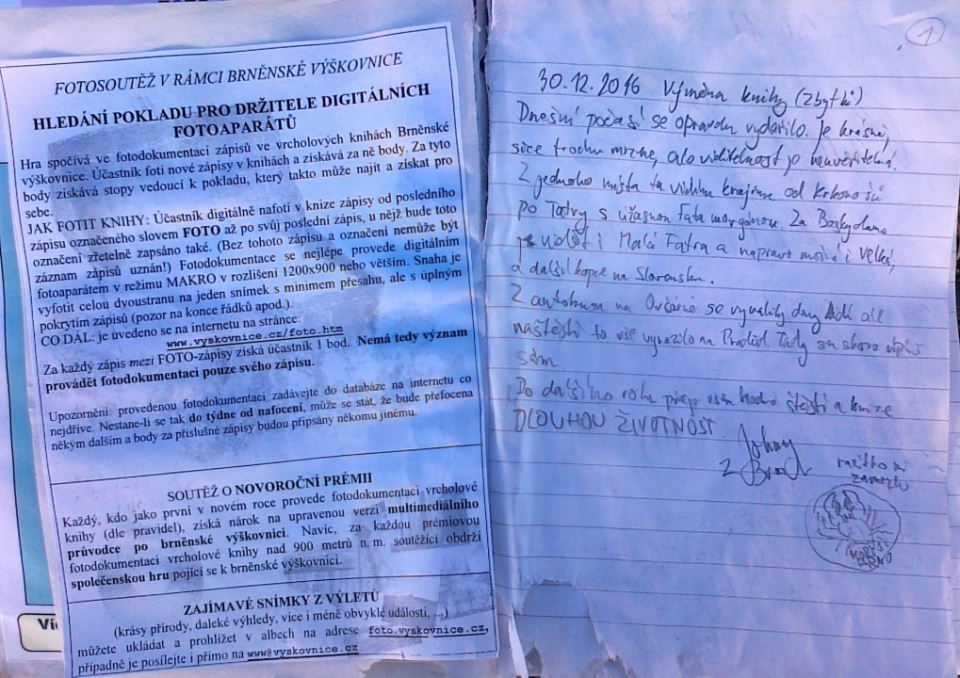 FOTOSOUTĚŽ V RÁMCI BRNĚNSKÉ VÝŠKOVNICE
HLEDÁNÍ POKLADU PRO DRŽITELE DIGITÁLNÍCH
FOTOAPARÁTŮ
Hra spočívá ve fotodokumentaci zápisů ve vrcholových knihách Brněnské
výškovnice. Účastník fotí nové zápisy v knihách a získává za ně body. Za tyto
body získává stopy vedoucí k pokladu, který takto může najít a získat pro
sebe.
JAK FOTIT KNIHY: Účastník digitálně nafotí v knize zápisy od posledního
zápisu označeného slovem FOTO až po svůj poslední zápis, u nějž bude toto
označení zřetelně zapsáno také. (Bez tohoto zápisu a označení nemůže být
záznam zápisů uznán!) Fotodokumentace se nejlépe provede digitálním
fotoaparátem v režimu MAKRO v rozlišení 1200x900 nebo větším. Snaha je
vyfotit celou dvoustranu na jeden snímek s minimem přesahu, ale s úplným
pokrytím zápisů (pozor na konce řádků apod.).
CO DÁL: je uvedeno se na internetu na stránce:
www.vyskovnice.cz/foto.htm
Za každý zápis mezi FOTO-zápisy získá účastník 1 bod. Nemá tedy význam
provádět fotodokumentaci pouze svého zápisu.
Upozornění: provedenou fotodokumentaci zadávejte do databáze na internetu co
nejdříve. Nestane-li se tak do týdne od nafocení, může se stát, že bude přefocena
někým dalším a body za příslušné zápisy budou připsány někomu jinému.
SOUTĚŽ O NOVOROČNÍ PRÉMII
Každý, kdo jako první v novém roce provede fotodokumentaci vrcholové
knihy (dle pravidel), získá nárok na upravenou verzi multimediálního
průvodce po brněnské výškovnici. Navíc, za každou prémiovou
fotodokumentaci vrcholové knihy nad 900 metrů n. m. soutěžící obdrží
společenskou hru pojící se k brněnské výškovnici.
ZAJÍMAVÉ SNÍMKY Z VÝLETŮ
(krásy přírody, daleké výhledy, více i méně obvyklé události, ...)
můžete ukládat a prohlížet v albech na adrese foto.vyskovnice.cz,
případně je posílejte i přímo na www@vyskovnice.cz
Ví
1
30.12.2016 Výměna knihy (zbytků)
Dnešní počasí se opravdu vydařilo. Je krásně,
sice trochu mrzne, ale viditelnost je neuvěřitelná.
Z jednoho místa tu vidím krajinu od Krkonoš
po Tatry s úžasnou Fata morgánou. Za Beskydama
je vidět i Malá Fatra a napravo možná i Velká,
a další kopce na Slovensku.
Z autobusu na Ovčárně se vyvalily davy lidí ale
naštěstí to vše vyrazilo na Praděd. Tady sem skoro úplně
sám.
Do dalšího roku přeju všem hodně štěstí a knize
DLOUHOU ŽIVOTNOST.
Johny
z Brod
razítko mi
zamrzlo